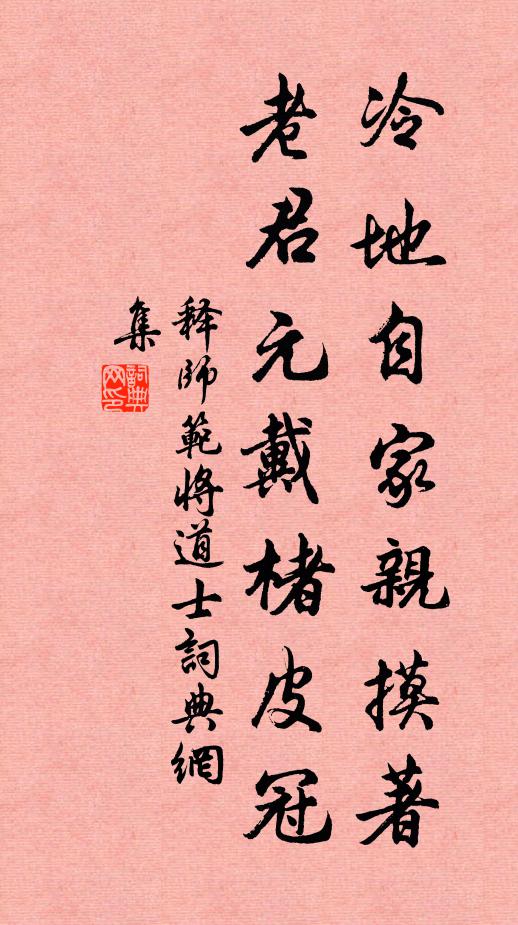 冷地自家親摸著
老君元戴楮皮冠
释師範將道士詞典網
集
詞典
网印